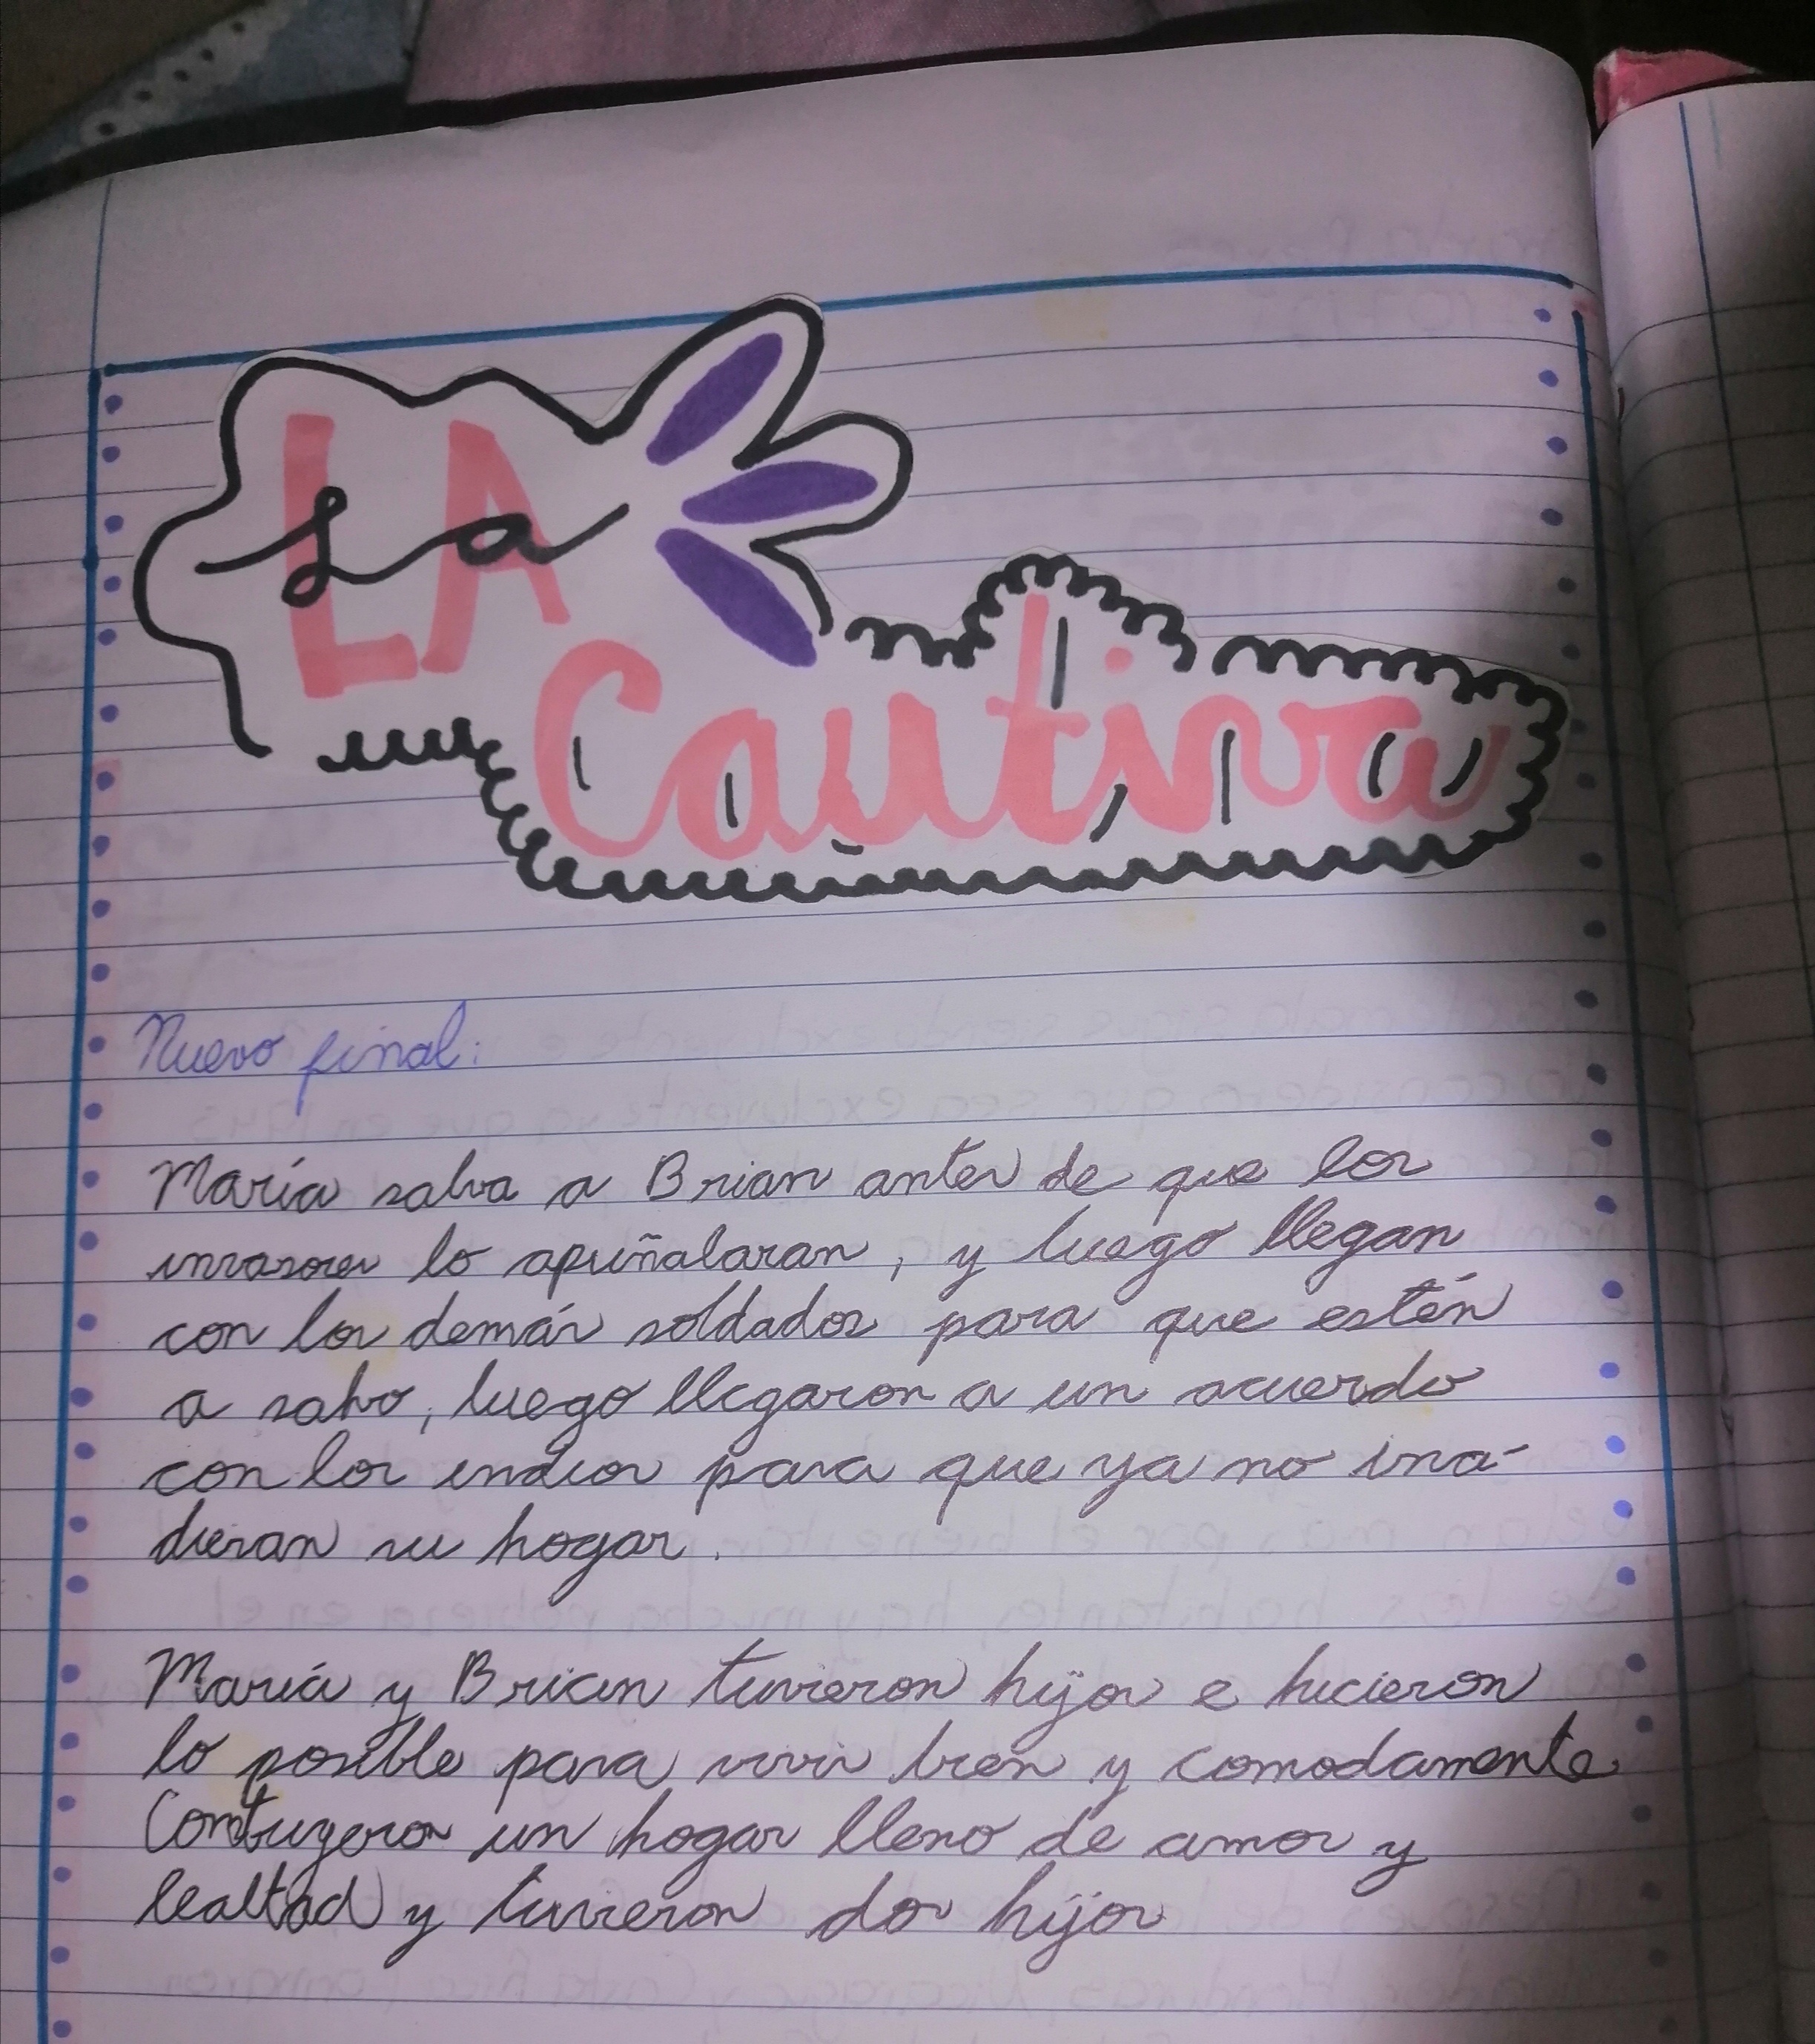 LA
La
Cautiva
Nuevo final:
María salva a Brian antes de que los
invasores lo apuñalaran, y luego llegan
con los demás soldados para que estén
a salvo, luego llegaron a un acuerdo
con los indios para que ya no inva-
dieran su hogar.
María y Brian tuvieron hijos e hicieron
lo posible para vivir bien y comodamente
Contruyeron un hogar lleno de amor y
lealtad y tuvieron dos hijos